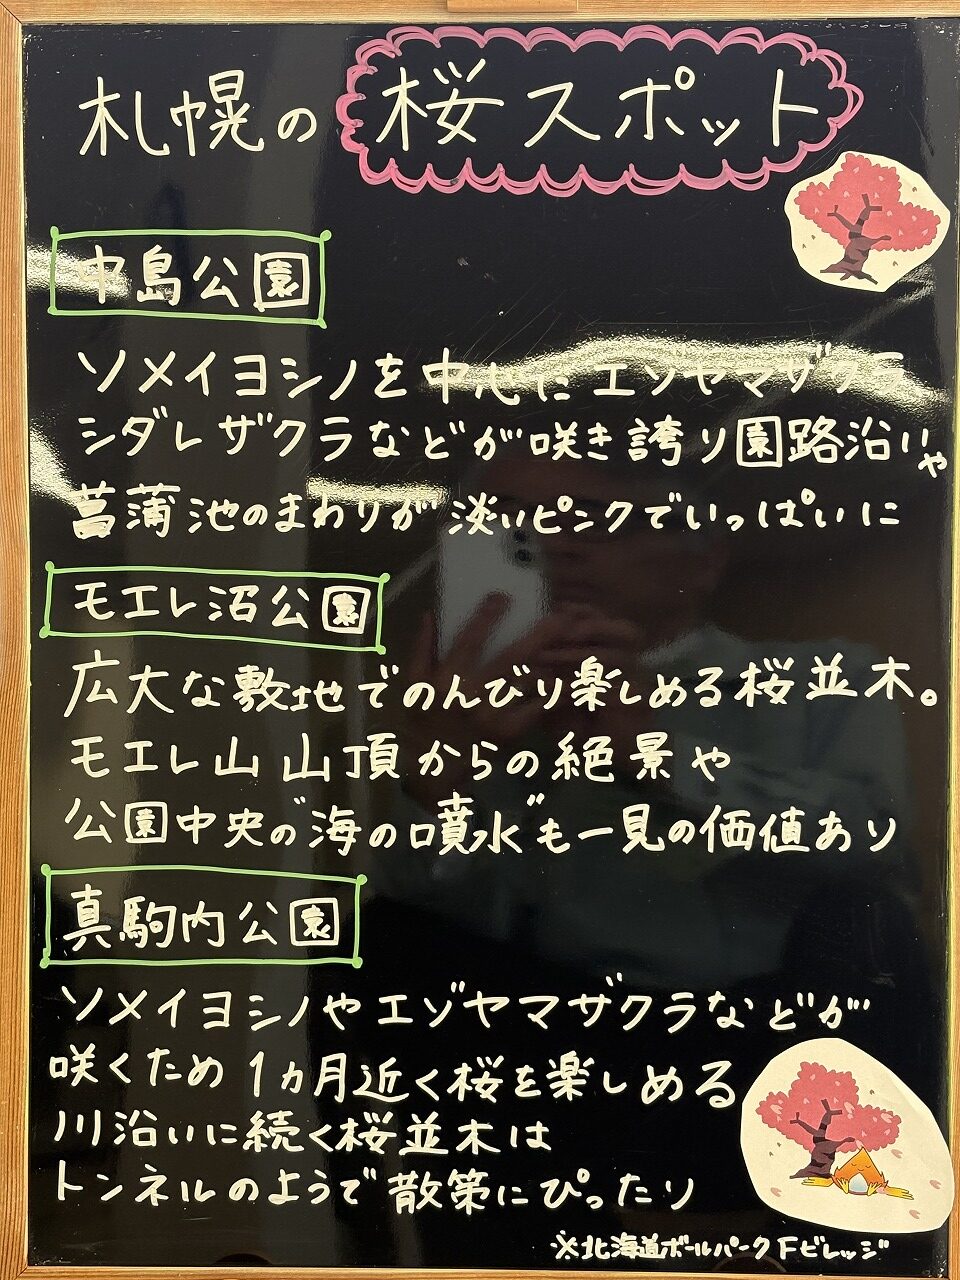 札幌の桜スポット
中島公園
ソメイヨシノを中心にエゾヤマザクラ
シダレザクラなどが咲き誇り園路沿いや
菖蒲池のまわりが淡いピンクでいっぱいに
モエレ沼公園
広大な敷地でのんびり楽しめる桜並木。
モエレ山 山頂からの絶景や
公園中央の"海の噴水"も一見の価値あり
真駒内公園
ソメイヨシノやエゾヤマザクラなどが
咲くため 1ヵ月近く桜を楽しめる
川沿いに続く桜並木は
トンネルのようで散策にぴったり
※北海道ボールパークFビレッジ